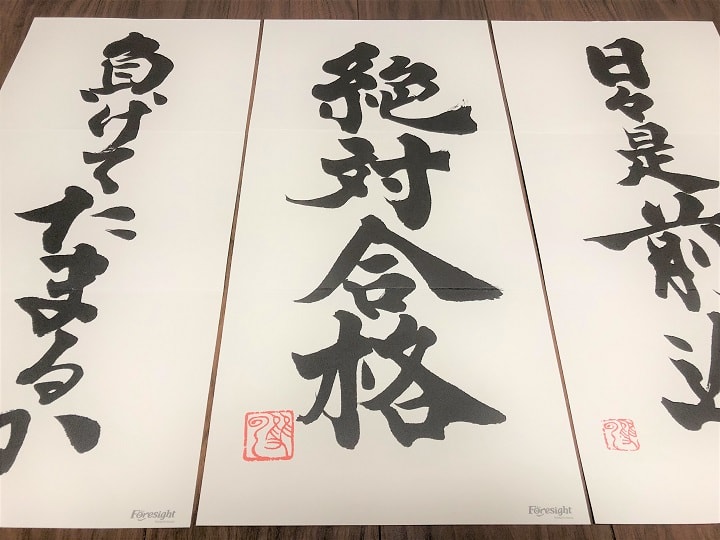 日々是前進
絶対合格
負けてたまるか
Foresight
Foresight